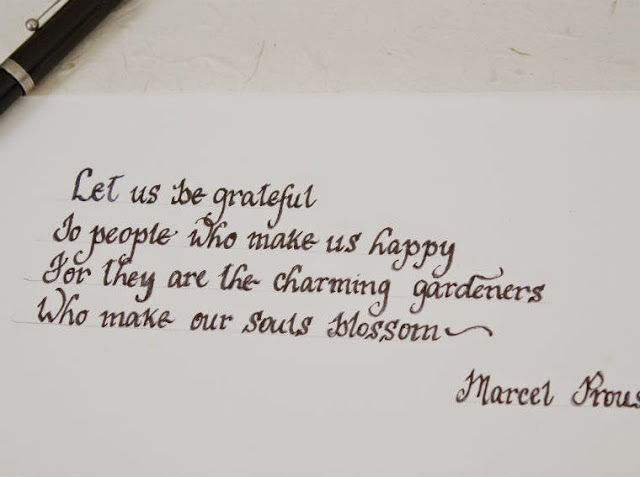 Let us be grateful
To people who make us happy
For they are the charming gardeners
Who make our souls blossom
Marcel Prous